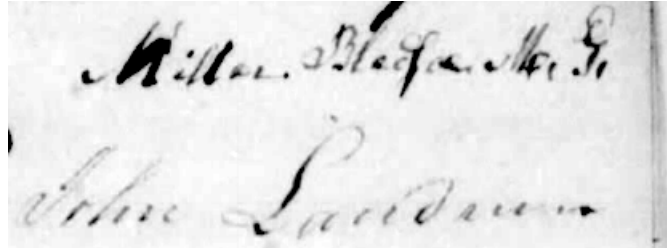 Miller Bledsoe M. G.
John Landrum